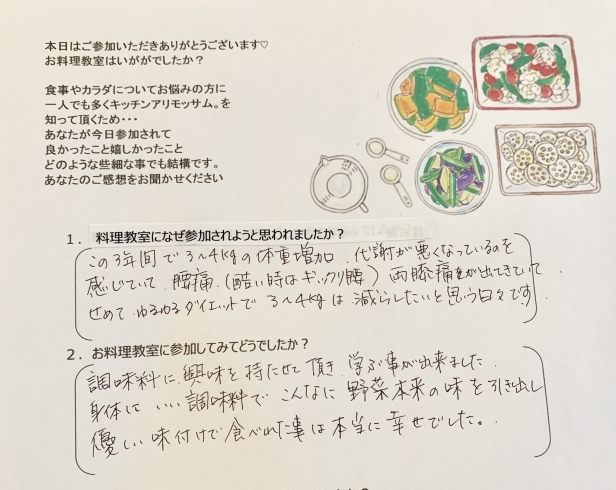 本日はご参加いただきありがとうございます♡
お料理教室はいかがでしたか？
食事やカラダについてお悩みの方に
一人でも多くキッチンアリモッサム。を
知って頂くため・・・
あなたが今日参加されて
良かったこと嬉しかったこと
どのような些細な事でも結構です。
あなたのご感想をお聞かせください
1．料理教室になぜ参加されようと思われましたか？
この3年間で3～4kgの体重増加、代謝が悪くなっているのを
感じていて、腰痛（酷い時はギックリ腰）両膝痛が出てきていて
せめてゆるゆるダイエットで3～4kgは減らしたいと思う日々です。
2．お料理教室に参加してみてどうでしたか？
調味料に興味を持たせて頂き、学ぶ事が出来ました。
身体にいい調味料でこんなに野菜本来の味を引き出し
優しい味付けで食べれた事は本当に幸せでした。